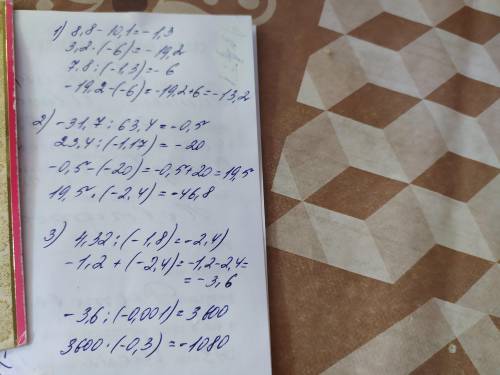 1) 8,8 - 10,1 = -1,3
3,2 · (-6) = -19,2
7.8 : (-1,3) = -6
-19,2 - (-6) = -19,2 + 6 = -13,2
2) -31,7 : 63,4 = -0,5
23,4 : (-1,17) = -20
-0,5 - (-20) = -0,5 + 20 = 19,5
19,5 · (-2,4) = -46,8
3) 4,32 : (-1,8) = -2,4)
-1,2 + (-2,4) = -1,2 - 2,4 =
= -3,6
-3,6 : (-0,001) = 3600
3600 · (-0,3) = -1080